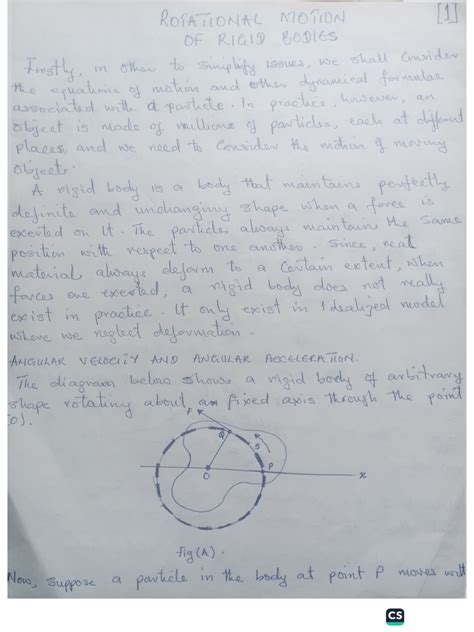 ROTATIONAL MOTION [1]
OF RIGID BODIES
Firstly, in other to simplify issues, we shall Consider
the equations of motion and other dynamical formulas
associated with a particle. In practice, however, an
object is made of millions of particles, each at different
places, and we need to Consider the motion of moving
Objects.
A rigid body is a body that maintains perfectly
definite and unchanging shape when a force is
exerted on it. The particles always maintains the same
position with respect to one another. Since, real
material always deform to a Certain extent, when
forces are exerted, a rigid body does not really
exist in practice. It only exist in Idealized model
where we neglect deformation.
ANGULAR VELOCITY AND ANGULAR ACCELERATION.
The diagram below shows a rigid body of arbitrary
shape rotating about an fixed axis through the point
(O).
F
Q
S
P
O
x
Fig (A).
Now, suppose a particle in the body at point P moves with
CS